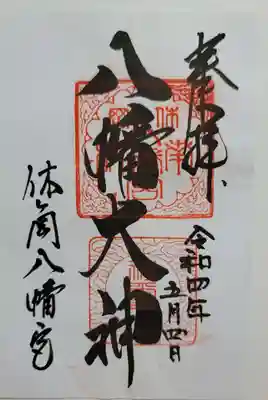 奉拝
八幡大神
令和四年
五月四日
休ヶ岡八幡宮